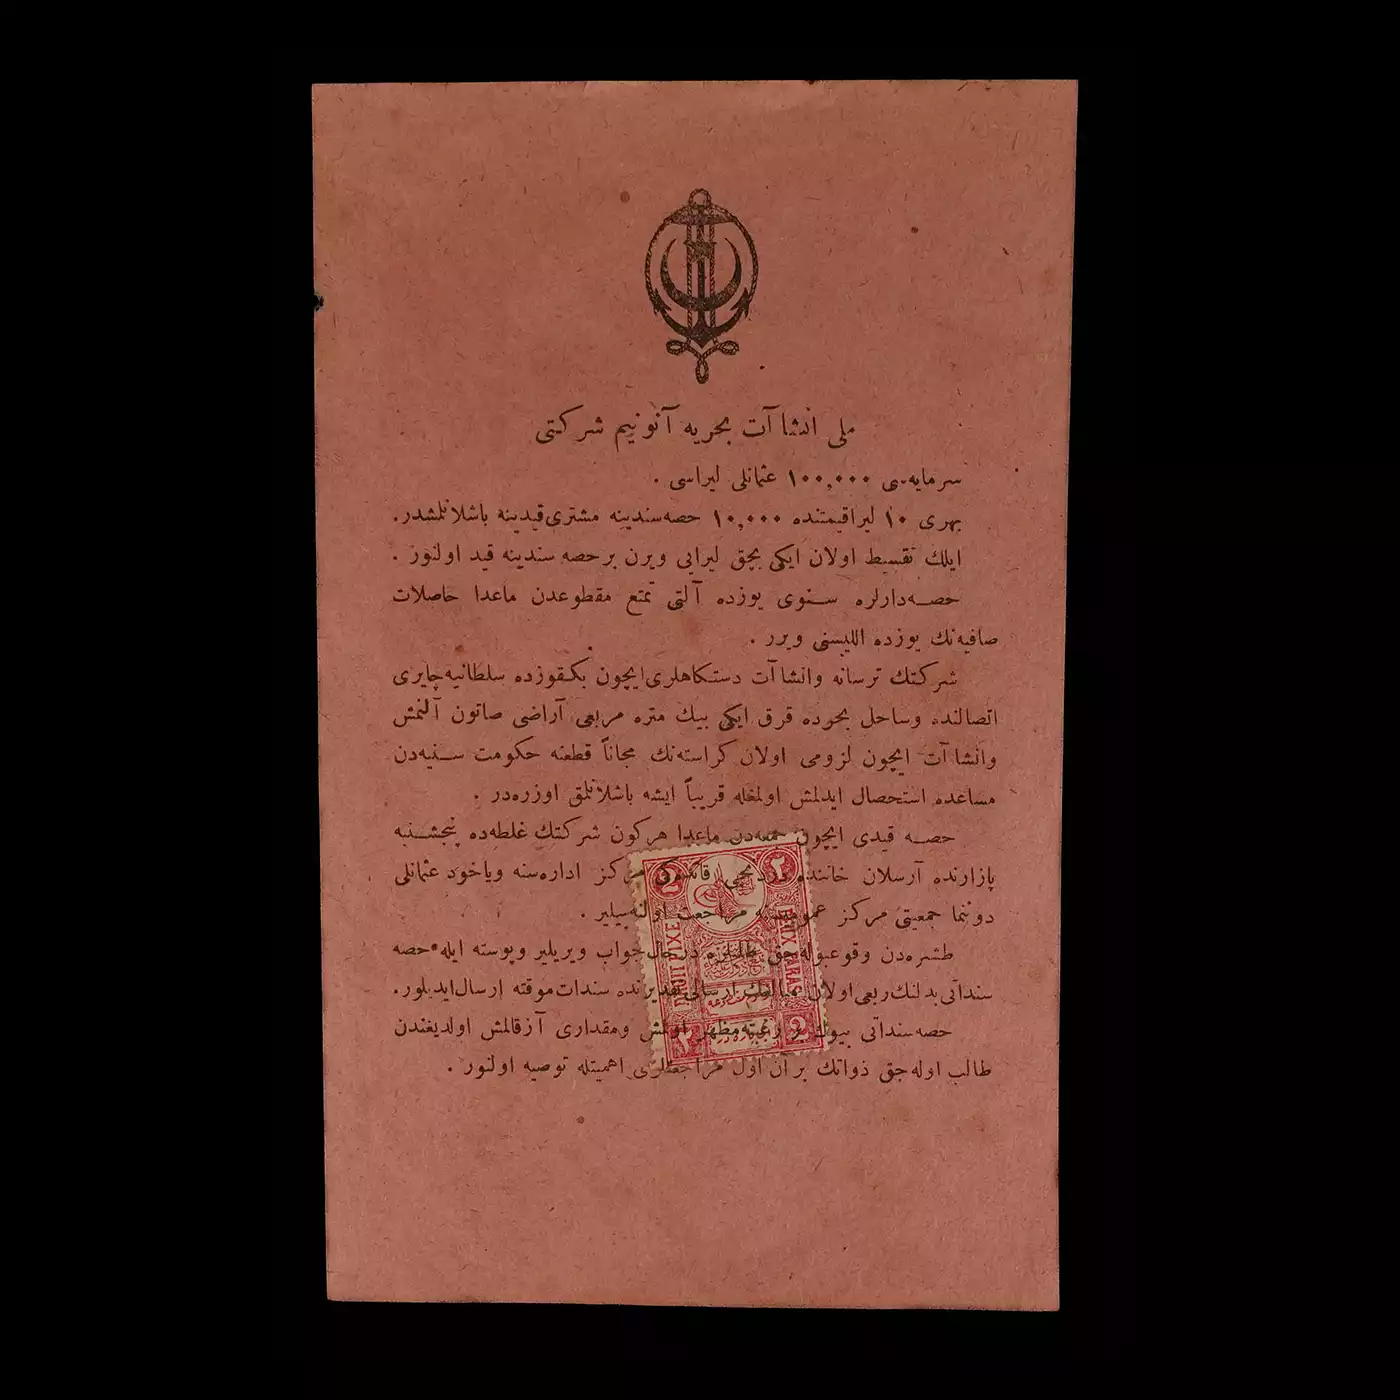 ملی انشاآت بحریه آنونیم شرکتی
سرمایه‌سی ۱۰۰,۰۰۰ عثمانلی لیراسی .
بهری ۱۰ لیراقیمتنده ۱۰,۰۰۰ حصه‌سندینه مشتری قیدینه باشلانلمشدر.
ایلك تقسیط اولان ایکی بچق لیرایی ویرن برحصه سندینه قید اولنور .
حصه‌دارلره سنوی یوزده آلتی تمتع مقطوعدن ماعدا حاصلات
صافیه‌نك یوزده اللیسنی ویرر .
شرکتك ترسانه وانشاآت دستکاهلری‌ایچون بکقوزده سلطانیه‌چایری
اتصالنده وساحل بحرده قرق ایکی بیك متره مربعی آراضی صاتون آلنمش
وانشاآت ایچون لزومی اولان کراسته‌نك مجاناً قطعنه حکومت سنیه‌دن
مساعده استحصال ایدلمش اولمغله قریباً ایشه باشلانلمق اوزره‌در .
حصه قیدی ایچون جمعه‌دن ماعدا هرکون شرکتك غلطه‌ده پنجشنبه
پازارنده آرسلان خاننده دردنجی مرکز اداره‌سنه ویاخود عثمانلی
دوننما جمعیتی مرکز عمومیسنه مراجعت اولنه‌بیلیر .
طشره‌دن وقوعبوله‌جق درحال‌جواب ویریلیر وپوسته ایله حصه
سنداتی بدلنك ربعی‌اولان ارسالی تقدیرنده سندات‌موقته ارسال‌ایدیلور.
حصه‌سنداتی بیوك بر رغبته‌مظهر اولمش ومقداری آزقالمش اولدیغندن
طالب اوله‌جق ذواتك برآن اول مراجعتلری اهمیتله توصیه اولنور .
۲
2
DROIT FIXE
DEUX PARAS
۲
2